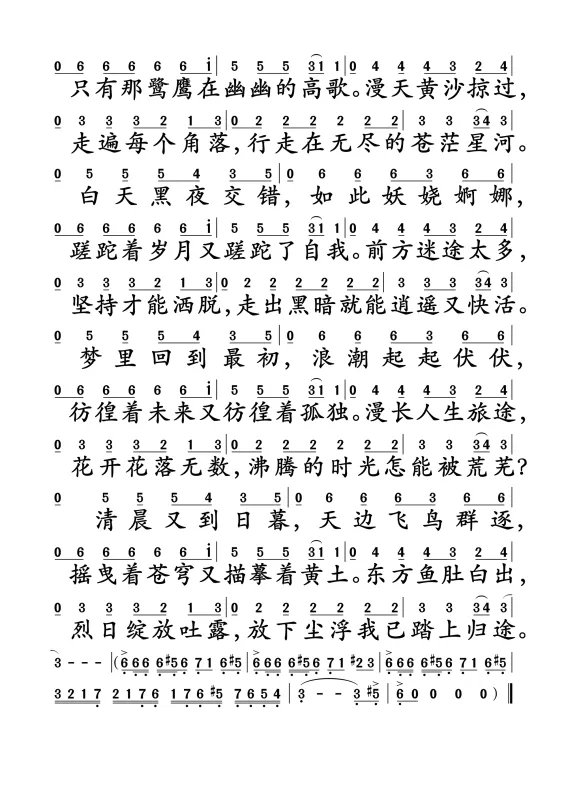 0 6 6 6 6 6 i | 5 5 5 31 1 | 0 4 4 4 3 2 4 |
只有那鹭鹰在幽幽的高歌。漫天黄沙掠过，
0 3 3 3 2 1 3 | 0 2 2 2 2 2 2 | 3 3 3 34 3 |
走遍每个角落，行走在无尽的苍茫星河。
0 5 5 5 4 3 5 | 0 6 6 6 3 6 6 |
白天黑夜交错，如此妖娆婀娜，
0 6 6 6 6 6 i | 5 5 5 31 1 | 0 4 4 4 3 2 4 |
蹉跎着岁月又蹉跎了自我。前方迷途太多，
0 3 3 3 2 1 3 | 0 2 2 2 2 2 2 | 3 3 3 34 3 |
坚持才能洒脱，走出黑暗就能逍遥又快活。
0 5 5 5 4 3 5 | 0 6 6 6 3 6 6 |
梦里回到最初，浪潮起起伏伏，
0 6 6 6 6 6 i | 5 5 5 31 1 | 0 4 4 4 3 2 4 |
彷徨着未来又彷徨着孤独。漫长人生旅途，
0 3 3 3 2 1 3 | 0 2 2 2 2 2 2 | 3 3 3 34 3 |
花开花落无数，沸腾的时光怎能被荒芜？
0 5 5 5 4 3 5 | 0 6 6 6 3 6 6 |
清晨又到日暮，天边飞鸟群逐，
0 6 6 6 6 6 i | 5 5 5 31 1 | 0 4 4 4 3 2 4 |
摇曳着苍穹又描摹着黄土。东方鱼肚白出，
0 3 3 3 2 1 3 | 0 2 2 2 2 2 2 | 3 3 3 34 3 |
烈日绽放吐露，放下尘浮我已踏上归途。
3 - - - | (6666 6#56 671 6#5 | 6666 6#56 671 #23 | 6666 6#56 671 6#5 |
3217 2176 176#5 7654 | 3 - - 3 #5 | 6 0 0 0 0 ) ‖